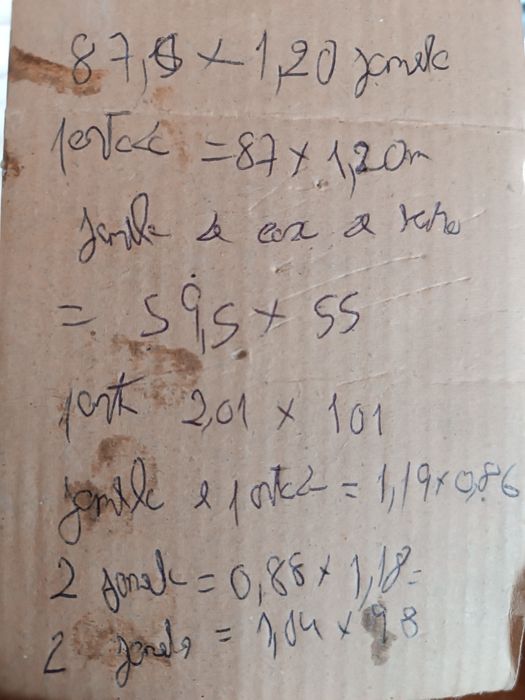 87,5 x 1,20 janela
porta = 87 x 1,20m
janela
= 59,5 x 55
porta 2,01 x 101
janela e porta = 1,19 x 0,86
2 janela = 0,88 x 1,18
2 janela = 1,04 x 98